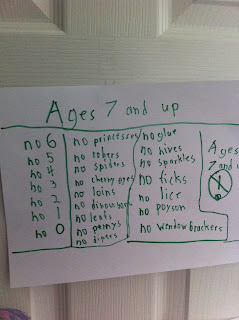 Ages 7 and up
no 6
no 5
no 4
no 3
no 2
no 1
no 0
no princesses
no robers
no spiders
no cherry eyes
no loins
no dinousors
no leafs
no pennys
no dipers
no glue
no hives
no sparkles
no ticks
no lice
no poyson
no wendow brackers
Ages
7 and u